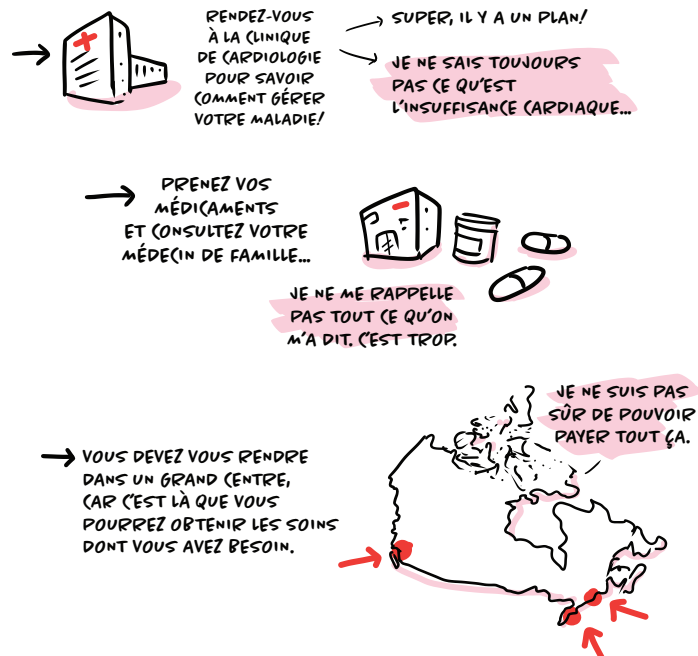 RENDEZ-VOUS
À LA CLINIQUE
DE CARDIOLOGIE
POUR SAVOIR
COMMENT GÉRER
VOTRE MALADIE!
SUPER, IL Y A UN PLAN!
JE NE SAIS TOUJOURS
PAS CE QU'EST
L'INSUFFISANCE CARDIAQUE...
PRENEZ VOS
MÉDICAMENTS
ET CONSULTEZ VOTRE
MÉDECIN DE FAMILLE...
JE NE ME RAPPELLE
PAS TOUT CE QU'ON
M'A DIT. C'EST TROP.
JE NE SUIS PAS
SÛR DE POUVOIR
PAYER TOUT ÇA.
VOUS DEVEZ VOUS RENDRE
DANS UN GRAND CENTRE,
CAR C'EST LÀ QUE VOUS
POURREZ OBTENIR LES SOINS
DONT VOUS AVEZ BESOIN.